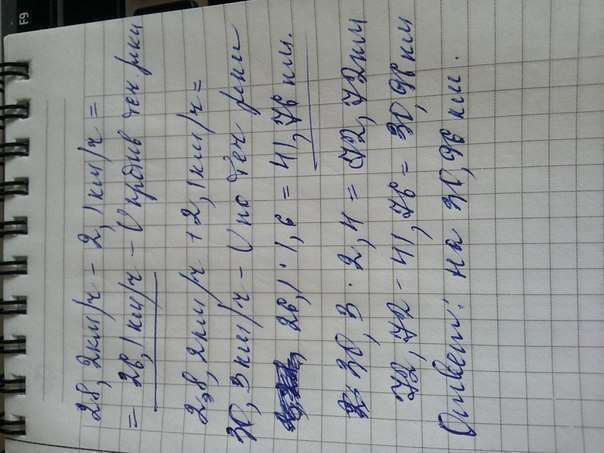 28,2км/ч - 2,1км/ч =
= 26,1км/ч - V против теч. реки
28,2км/ч + 2,1км/ч =
30,3км/ч - V по теч реки
26,1 · 1,6 = 41,76 км.
30,3 · 2,4 = 72,72км
72,72 - 41,76 = 30,96 км
Ответ: на 30,96 км.
F9